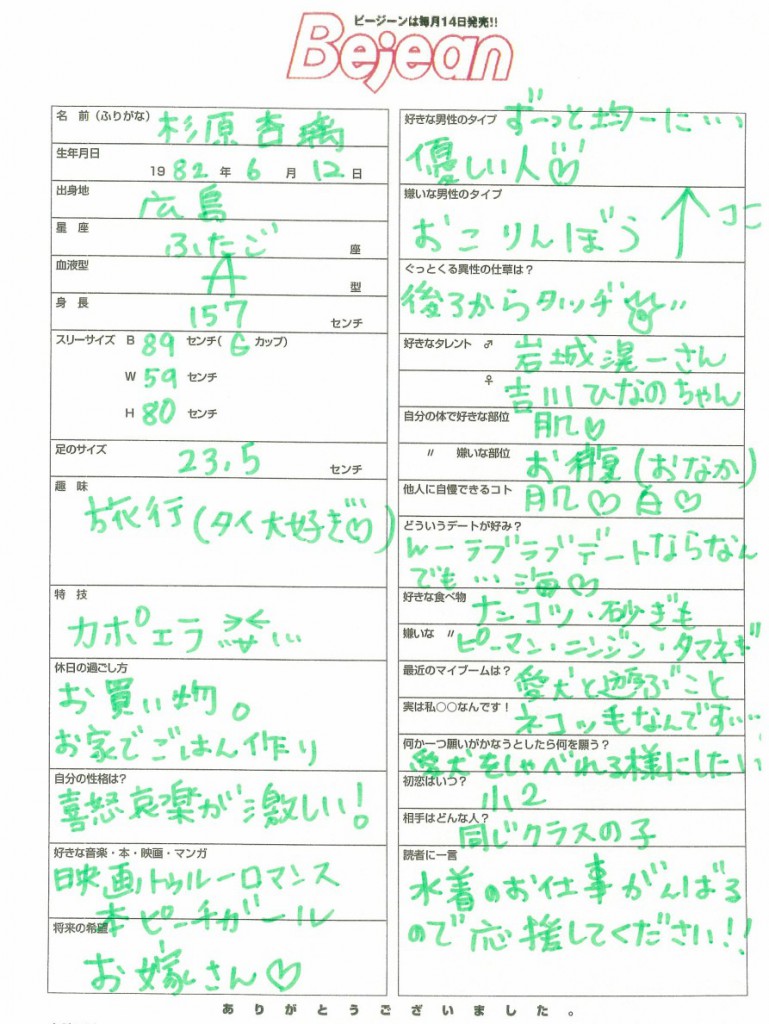 ビージーンは毎月14日発売!!
Bejean
名 前（ふりがな） 杉原杏璃
生年月日
1982年6月12日
出身地 広島
星 座 ふたご座
血液型 A型
身 長 157センチ
スリーサイズ B 89センチ(Gカップ)
W 59センチ
H 80センチ
足のサイズ 23.5センチ
趣 味
旅行(タイ大好き♡)
特 技
カポエラ
休日の過ごし方
お買い物。
お家でごはん作り
自分の性格は?
喜怒哀楽が激しい!
好きな音楽・本・映画・マンガ
映画トゥルーロマンス
本ピーチガール
将来の希望
お嫁さん♡
好きな男性のタイプ ずーっと均一に…
優しい人♡
嫌いな男性のタイプ
おこりんぼう ↑ココ
ぐっとくる異性の仕草は?
後ろからタッチ
好きなタレント ♂ 岩城滉一さん
♀ 吉川ひなのちゃん
自分の体で好きな部位 肌♡
〃 嫌いな部位 お腹(おなか)
他人に自慢できるコト 肌♡白♡
どういうデートが好み?
んーラブラブデートならなん
でも…海♡
好きな食べ物 ナンコツ・砂ぎも
嫌いな 〃 ピーマン・ニンジン・タマネギ
最近のマイブームは? 愛犬と遊ぶこと
実は私○○なんです! ネコッ毛なんです…
何か一つ願いがかなうとしたら何を願う?
愛犬をしゃべれる様にしたい
初恋はいつ? 小2
相手はどんな人?
同じクラスの子
読者に一言
水着のお仕事がんばる
ので応援してください!!
ありがとうございました。